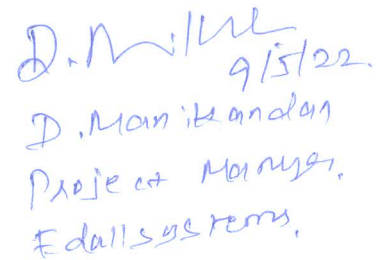 9/5/22
D. Manikandan
Project Manager.
Edall systems.